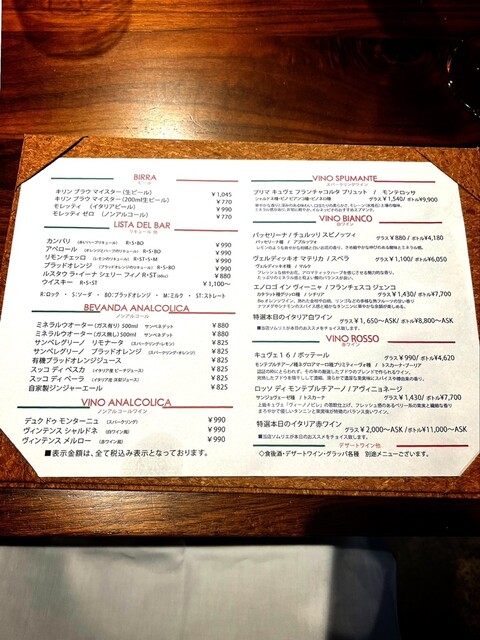 BIRRA
ビール
キリン ブラウ マイスター(生ビール) ¥1,045
キリン ブラウ マイスター(200ml生ビール) ¥770
モレッティ (イタリアビール) ¥990
モレッティ ゼロ (ノンアルコール) ¥770
LISTA DEL BAR
リキュール 他
カンパリ R・S・BO ¥990
アペロール R・S・BO ¥990
リモンチェッロ (レモンのリキュール) R・ST・S・M ¥990
ブラッドオレンジ (ブラッドオレンジのリキュール) R・S・BO ¥990
ルスタウ ラ・イーナ シェリー フィノ R・ST ¥880
ウイスキー R・S・ST ¥1,100〜
R:ロック ・ S:ソーダ ・ BO:ブラッドオレンジ ・ M:ミルク ・ ST:ストレート
BEVANDA ANALCOLICA
ノンアルコール
ミネラルウオーター(ガス有り) 500ml サンベネデット ¥880
ミネラルウオーター(ガス無し) 500ml サンベネデット ¥880
サンペレグリーノ リモナータ (スパークリング・レモン) ¥825
サンペレグリーノ ブラッドオレンジ (スパークリング・オレンジ) ¥825
有機ブラッドオレンジジュース ¥825
スッコ ディ ペスカ (イタリア産 ピーチジュース) ¥825
スッコ ディ ペーラ (イタリア産 洋梨ジュース) ¥825
自家製ジンジャーエール ¥825
VINO ANALCOLICA
ノンアルコールワイン
デュク ドゥ モンターニュ (スパークリング) ¥990
ヴィンテンス シャルドネ (白ワイン風) ¥990
ヴィンテンス メルロー (赤ワイン風) ¥990
■表示金額は、全て税込み表示となっております。
VINO SPUMANTE
スパークリングワイン
プリマ キュヴェ フランチャコルタ ブリュット / モンテロッサ
シャルドネ種・ピノ・ビアンコ種・ピノ・ネロ種 グラス¥1,540/ ボトル¥9,900
VINO BIANCO
白ワイン
パッセリーナ / チュルッリ スピノッツィ グラス¥880 / ボトル¥4,180
パッセリーナ種 / アブルッツォ
ヴェルディッキオ マテリカ / スベラ グラス¥1,100/ ボトル¥6,050
ヴェルディッキオ種 / マルケ
エノロゴ イン ヴィーニャ / フランチェスコ ジェンコ
カタラット種グリッロ種 / シチリア グラス¥1,430/ ボトル¥7,700
特選本日のイタリア白ワイン グラス¥1,650〜ASK /ボトル¥8,800〜ASK
■当店ソムリエが本日のおススメをチョイス致します。
VINO ROSSO
赤ワイン
キュヴェ16 / ポッテール グラス¥990/ ボトル¥4,620
ロッソ ディ モンテプルチアーノ / アヴィニョネージ
サンジョヴェーゼ種 / トスカーナ グラス¥1,430/ ボトル¥7,700
特選本日のイタリア赤ワイン グラス¥2,000〜ASK /ボトル¥11,000〜ASK
■当店ソムリエが本日のおススメをチョイス致します。
デザートワイン他
◇食後酒・デザートワイン・グラッパ各種 別途メニューございます。